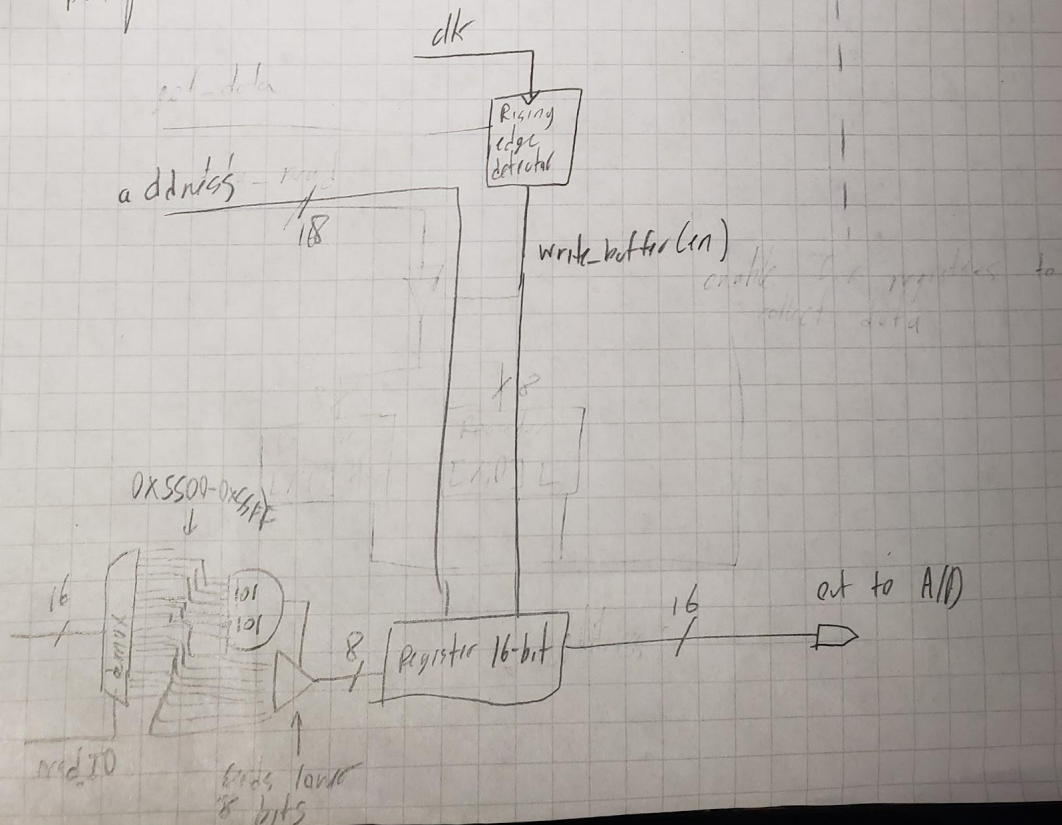 clk
Rising
edge
detector
address
18
write_buffer(en)
enable
registers to
collect data
8
0x5500-0x55ff
16
demux
101
101
8
Register 16-bit
16
out to A/D
8 bits